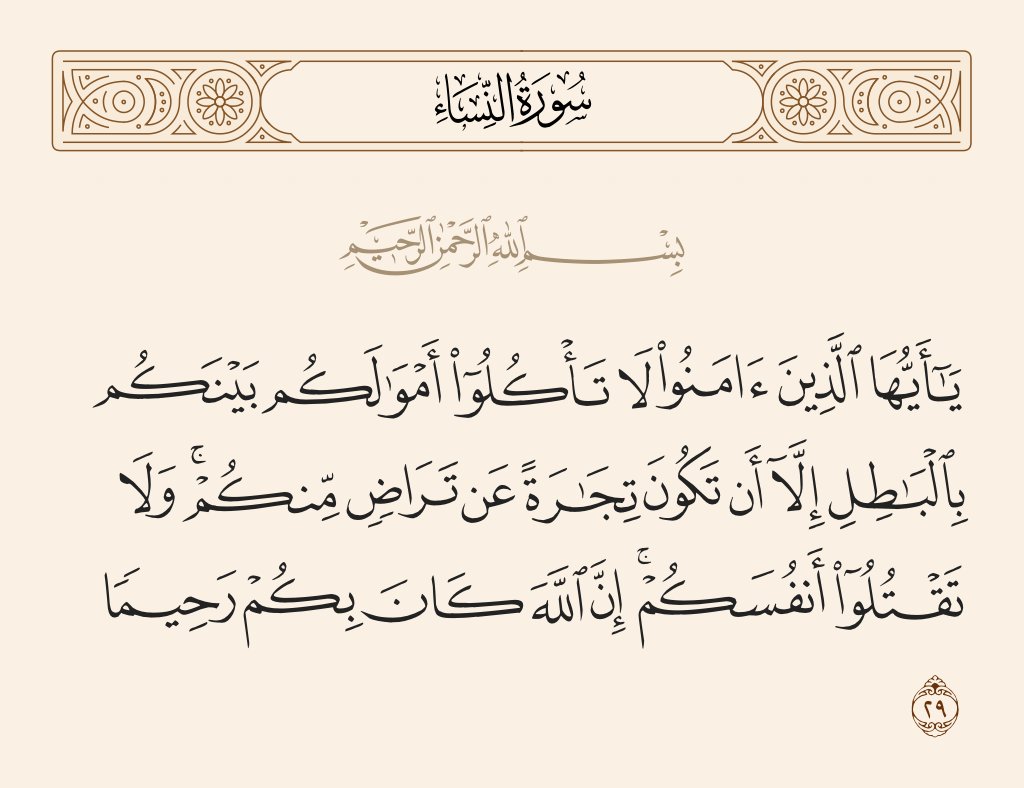 سُورَةُ النِّسَاءِ
بِسْمِ ٱللَّهِ ٱلرَّحْمَٰنِ ٱلرَّحِيمِ
يَـٰٓأَيُّهَا ٱلَّذِينَ ءَامَنُوا۟ لَا تَأْكُلُوٓا۟ أَمْوَٰلَكُم بَيْنَكُم
بِٱلْبَـٰطِلِ إِلَّآ أَن تَكُونَ تِجَـٰرَةً عَن تَرَاضٍ مِّنكُمْ ۚ وَلَا
تَقْتُلُوٓا۟ أَنفُسَكُمْ ۚ إِنَّ ٱللَّهَ كَانَ بِكُمْ رَحِيمًا
٢٩